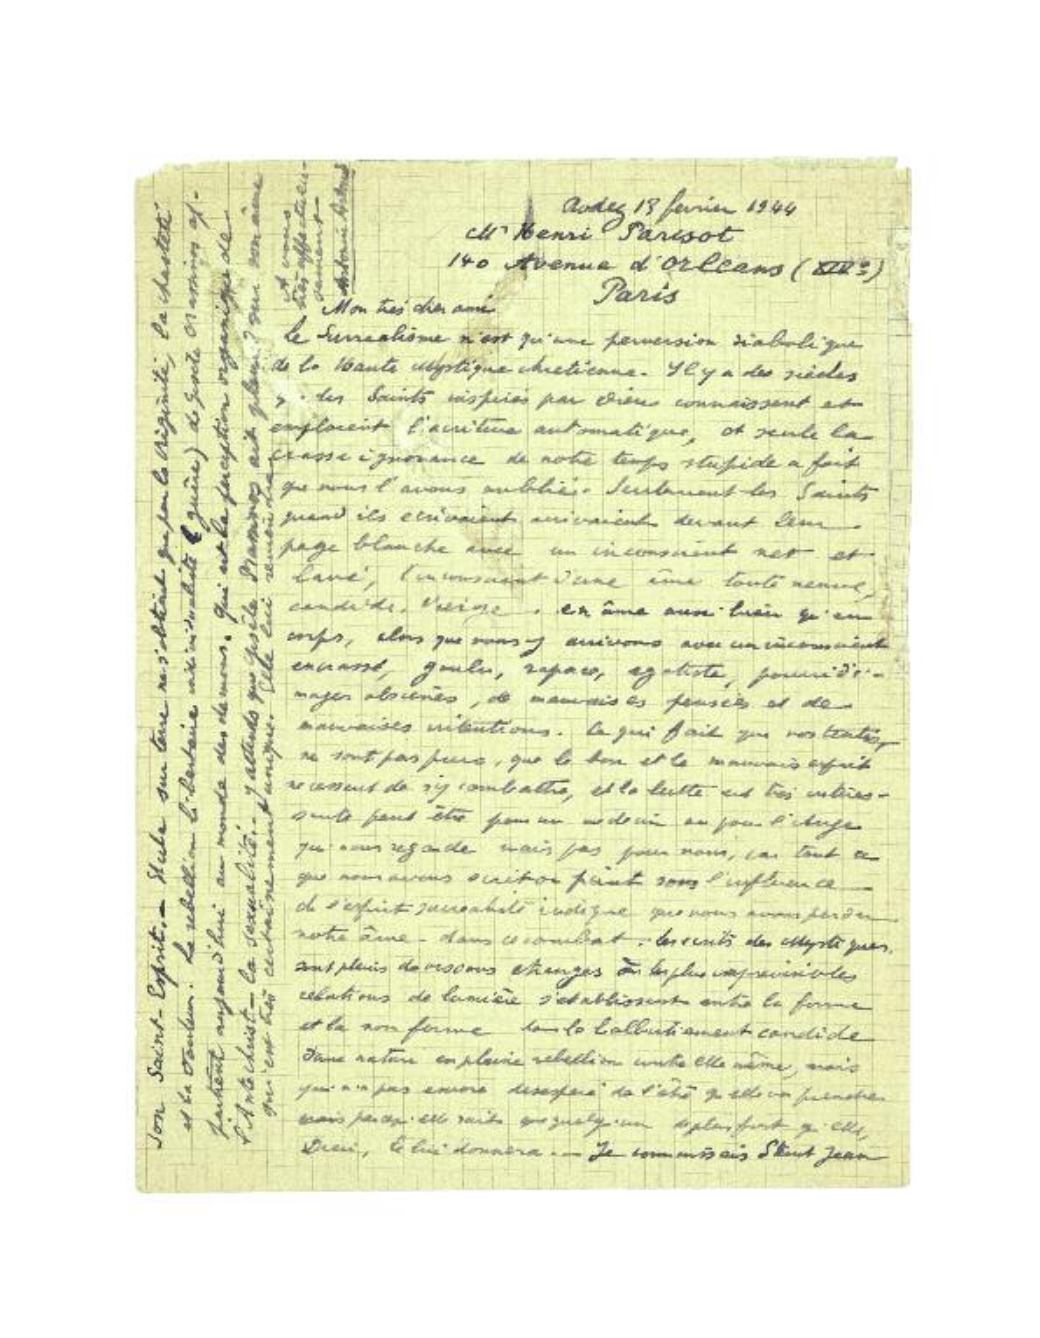 Rodez 18 février 1944
Mr Henri Parisot
140 Avenue d'Orléans (XIVe)
Paris
Mon très cher ami
Le Surréalisme n'est qu'une perversion diabolique
de la Haute Mystique chrétienne. Il y a des siècles
les Saints inspirés par Dieu connaissent et
emploient l'écriture automatique, et seule la
crasse ignorance de notre temps stupide a fait
que nous l'avons oubliée. Seulement les Saints
quand ils écrivaient arrivaient devant leur
page blanche avec un inconscient net et
lavé, l'inconscient d'une âme toute neuve,
candide, vierge en âme aussi bien qu'en
corps, alors que nous y arrivons avec un inconscient
encrassé, goulu, rapace, egotiste, pourri d'i-
mages obscènes, de mauvaises pensées et de
mauvaises intentions. Ce qui fait que nos textes
ne sont pas purs, que le bon et le mauvais esprit
ne cessent de s'y combattre, et la lutte est très intéres-
sante peut être pour un médecin ou pour l'Ange
qui nous regarde mais pas pour nous, car tout ce
que nous avons écrit ou peint sous l'influence
de l'esprit surréaliste indique que nous avons perdu
notre âme dans ce combat. Les écrits des Mystiques
sont pleins de visions étranges où les plus imprévisibles
relations de lumière s'établissent entre la forme
et la non forme dans le balbutiement candide
d'une nature en pleine rébellion contre elle même, mais
qui n'a pas encore désespéré de l'été qu'elle va prendre
mais parce qu'elle sait que quelqu'un de plus fort qu'elle,
Dieu, le lui donnera. — Je connaissais Saint Jean
son Saint-Esprit. — Mais sur terre ne s'obtient que par la Virginité, la chasteté
et la douleur. La rébellion libertaire individualiste
partent aujourd'hui au monde des démons. Qui est la perception organique de
l'Antechrist — la sexualité. — J'attends que Gisèle Prassinos ait pleuré sur son âme
qui est très certainement unique. Elle lui
A vous
très affectueu-
sement
Antonin Artaud